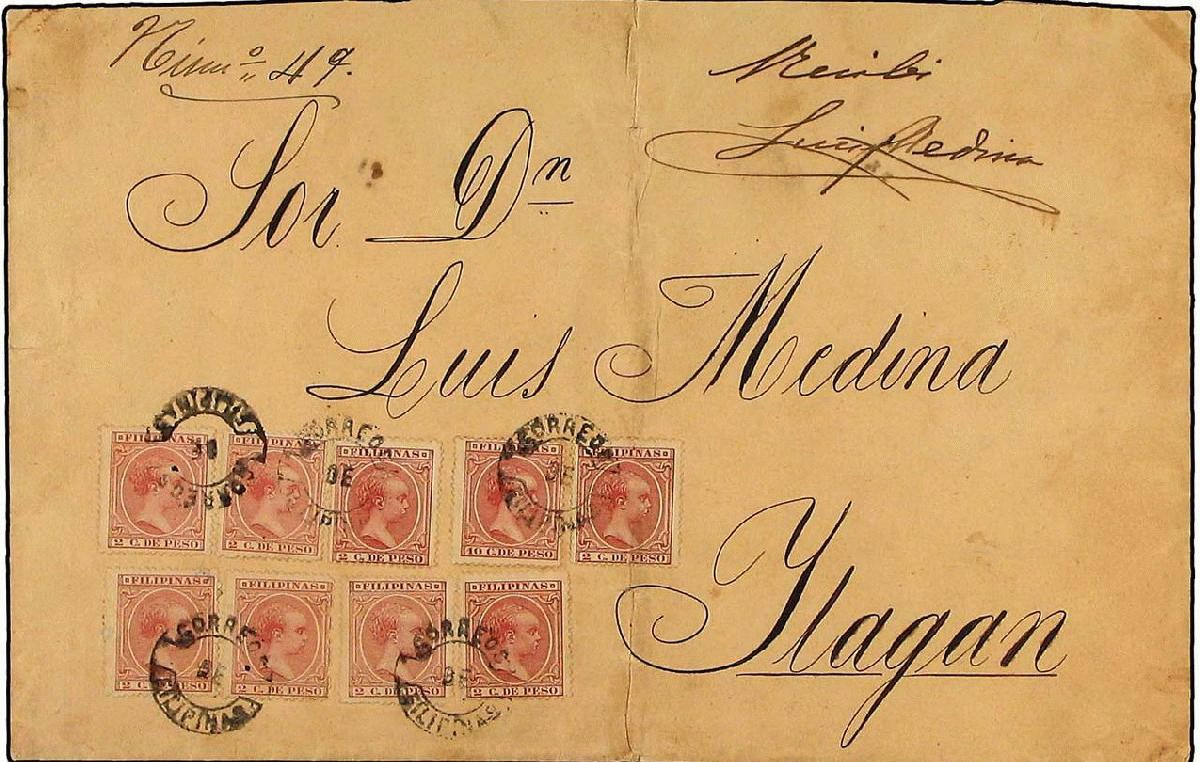 Núm.º 49.
Recibí
Luis Medina
Sor. Dn
Luis Medina
Ilagan
FILIPINAS 2 C. DE PESO
FILIPINAS 2 C. DE PESO
FILIPINAS 2 C. DE PESO
FILIPINAS 10 C. DE PESO
FILIPINAS 2 C. DE PESO
FILIPINAS 2 C. DE PESO
FILIPINAS 2 C. DE PESO
FILIPINAS 2 C. DE PESO
FILIPINAS 2 C. DE PESO
CORREOS DE FILIPINAS
CORREOS DE FILIPINAS
CORREOS DE FILIPINAS
CORREOS DE FILIPINAS
CORREOS DE FILIPINAS